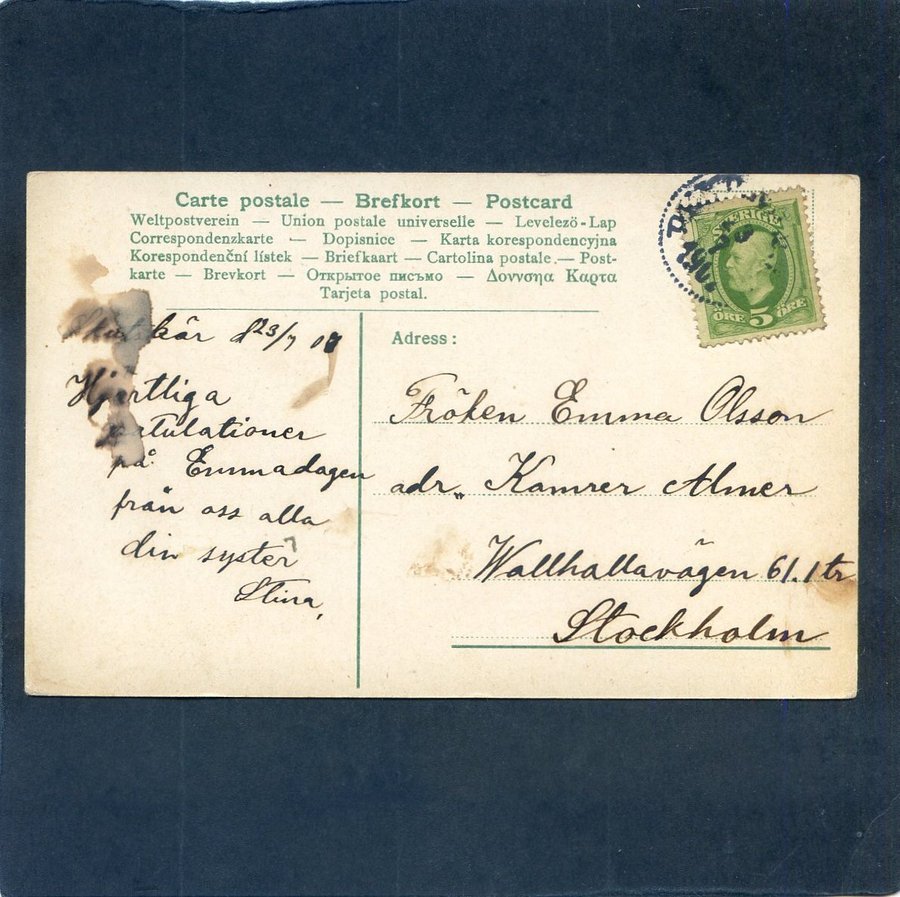 Carte postale — Brefkort — Postcard
Weltpostverein — Union postale universelle — Levelező-Lap
Correspondenzkarte — Dopisnice — Karta korespondencyjna
Korespondenční lístek — Briefkaart — Cartolina postale. — Post-
karte — Brevkort — Открытое письмо — Δουνσηα Καρτα
Tarjeta postal.
SVERIGE
ÖRE 5 ÖRE
d 23/7
Hjertliga
på Emmadagen
från oss alla
din syster
Stina,
Adress:
Fröken Emma Olsson
adr. Kamrer Almer
Wallhallavägen 61. 1 tr
Stockholm